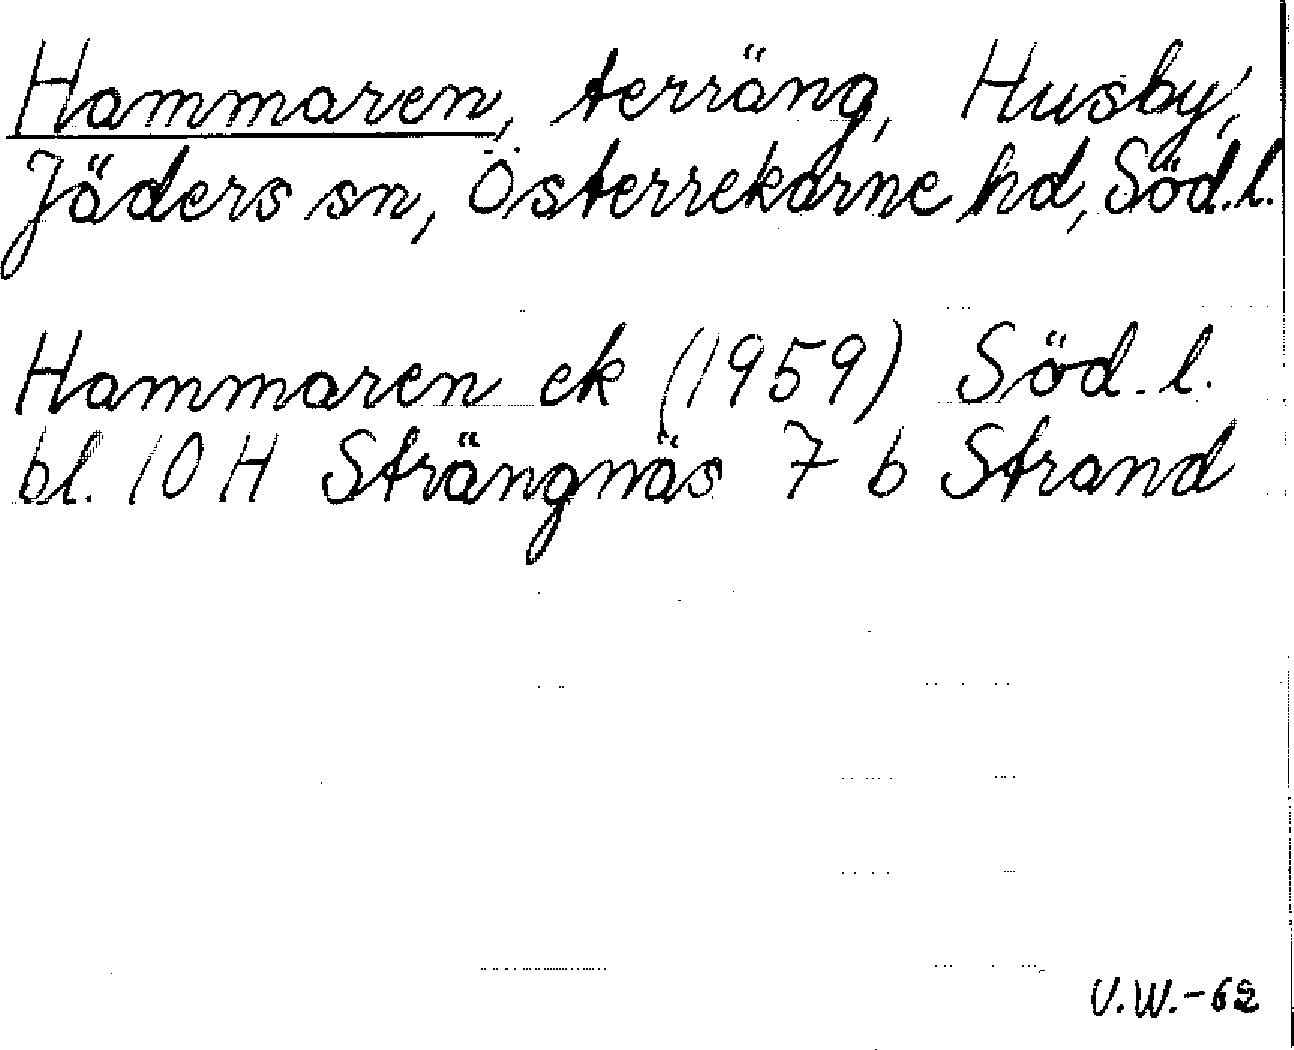 Hammaren, terräng, Husby,
Jäders sn, Österrekarne hd, Söd.l.
Hammaren ek (1959) Söd.l.
bl. 10 H Strängnäs 7 b Strand
V.W.-62